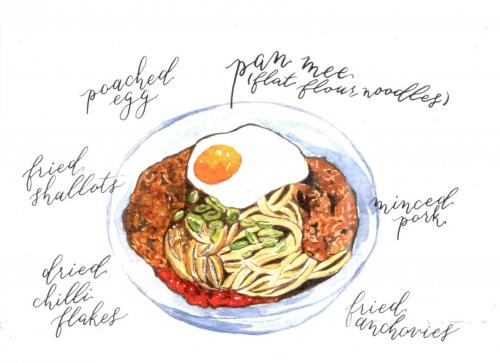 poached
egg
pan mee
(flat flour noodles)
fried
shallots
minced
pork
dried
chilli
flakes
fried
anchovies